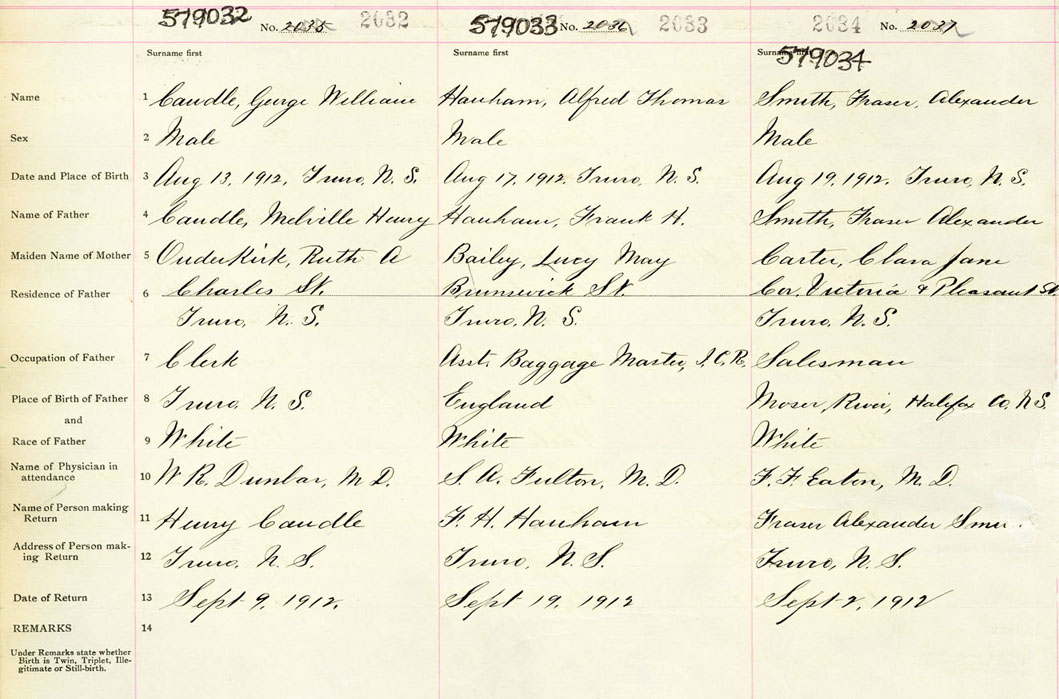 579032 No. 2035 2032 579033 No. 2036 2033 2034 No. 2037
Surname first Surname first Surname first 579034
Name 1 Caudle, George William Hanham, Alfred Thomas Smith, Fraser, Alexander
Sex 2 Male Male Male
Date and Place of Birth 3 Aug 13, 1912, Truro, N. S. Aug 17, 1912. Truro, N. S. Aug 19, 1912. Truro, N. S.
Name of Father 4 Caudle, Melville Henry Hanham, Frank H. Smith, Fraser Alexander
Maiden Name of Mother 5 OuderKirk, Ruth A Bailey, Lucy May Carter, Clara Jane
Residence of Father 6 Charles St. Brunswick St. Cor. Victoria & Pleasant St
Truro, N. S. Truro, N. S. Truro, N. S.
Occupation of Father 7 Clerk Asst. Baggage Master, I.C.R. Salesman
Place of Birth of Father 8 Truro, N. S. England Moser River, Halifax Co, N S.
and
Race of Father 9 White White White
Name of Physician in
attendance 10 W R. Dunbar, M D. S. A. Fulton, M. D. F. F. Eaton, M. D.
Name of Person making
Return 11 Henry Caudle F. H. Hanham Fraser Alexander
Address of Person mak-
ing Return 12 Truro, N. S. Truro, N. S. Truro, N. S.
Date of Return 13 Sept 9, 1912. Sept 19, 1912 Sept 2, 1912
REMARKS 14
Under Remarks state whether
Birth is Twin, Triplet, Ille-
gitimate or Still-birth.